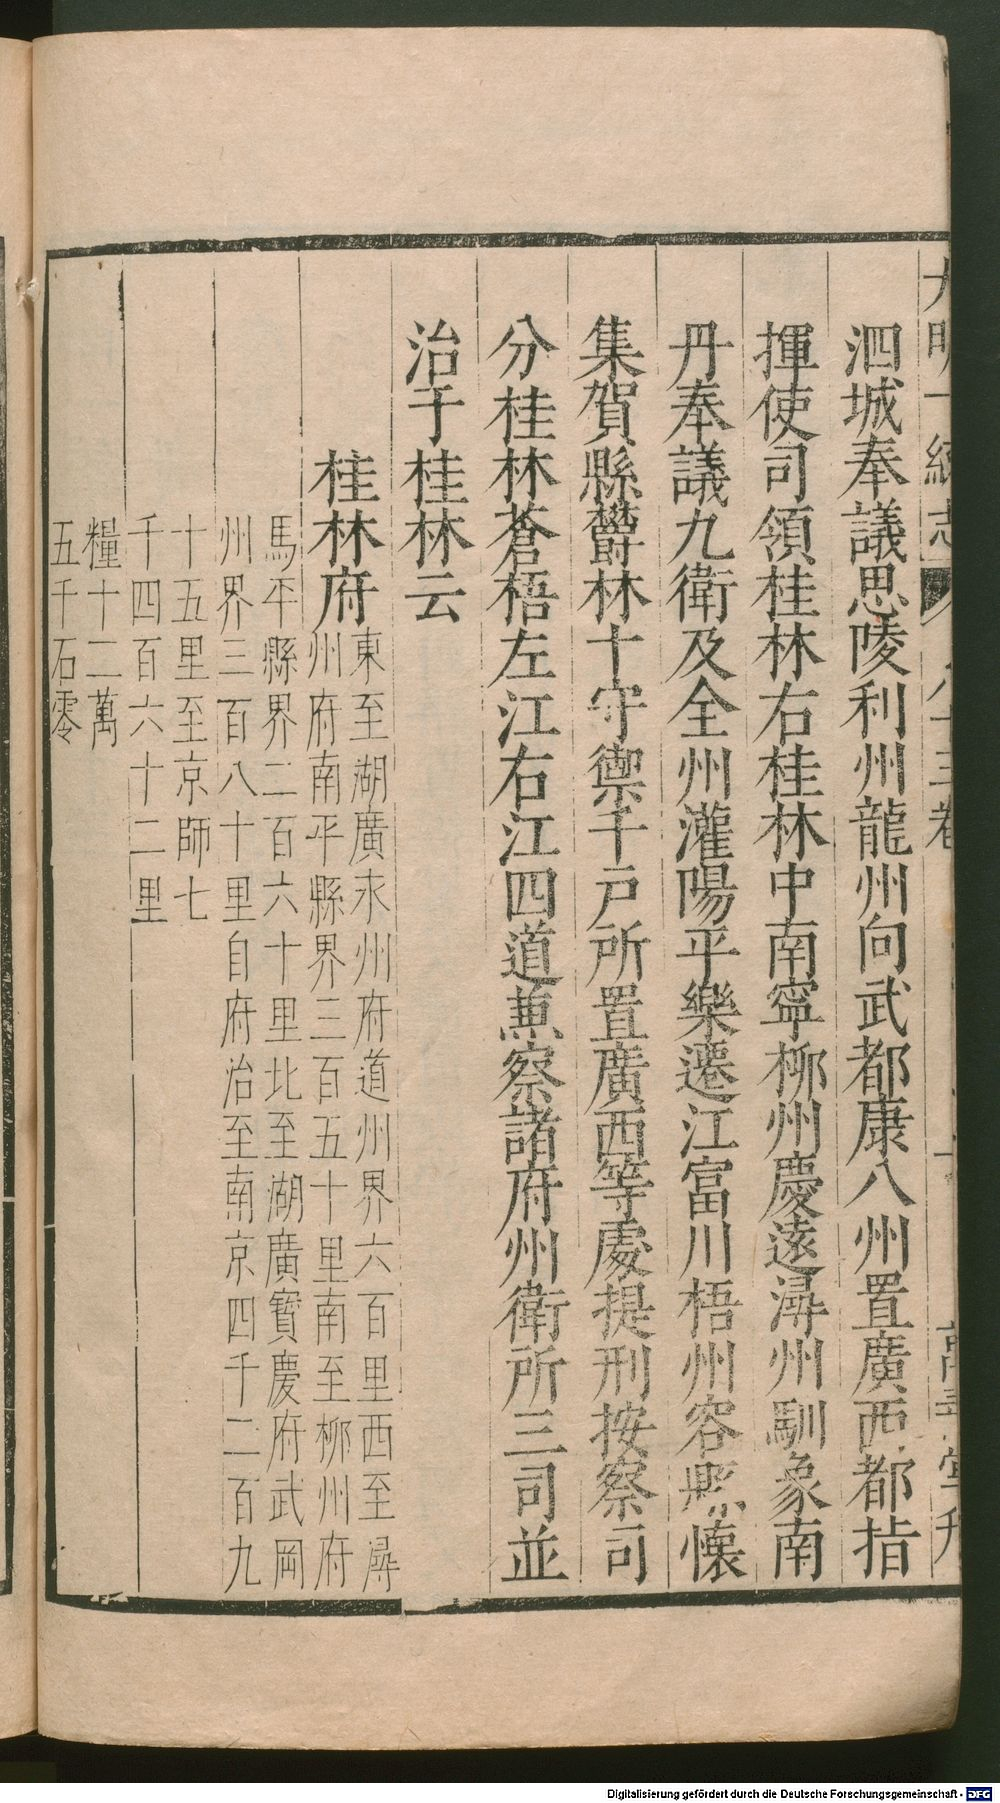 大明一統志 八十三卷 萬壽堂刋
泗城奉議思陵利州龍州向武都康八州置廣西都指
揮使司領桂林右桂林中南寧柳州慶遠潯州馴象南
丹奉議九衛及全州灌陽平樂遷江富川梧州容縣懷
集賀縣欝林十守禦千戶所置廣西等處提刑按察司
分桂林蒼梧左江右江四道兼察諸府州衛所三司並
治于桂林云
桂林府
東至湖廣永州府道州界六百里西至潯
州府南平縣界三百五十里南至柳州府
馬平縣界二百六十里北至湖廣寳慶府武岡
州界三百八十里自府治至南京四千二百九
十五里至京師七
千四百六十二里
糧十二萬
五千石零
Digitalisierung gefördert durch die Deutsche Forschungsgemeinschaft - DFG